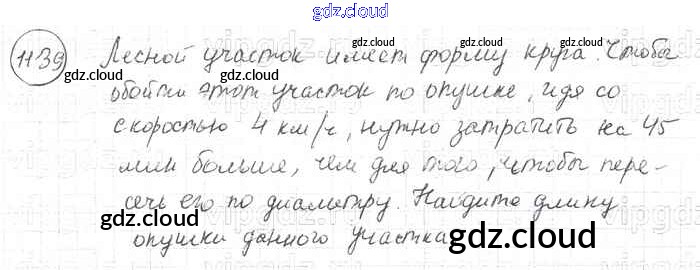 gdz.cloud
1139 Лесной участок имеет форму круга. Чтобы
gdz.cloud gdz.cloud gdz.cloud
обойти этот участок по опушке, идя со
скоростью 4 км/ч, нужно затратить на 45
мин больше, чем для того, чтобы пере-
сечь его по диаметру. Найдите длину
gdz.cloud gdz.cloud
опушки данного участка
gdz.cloud